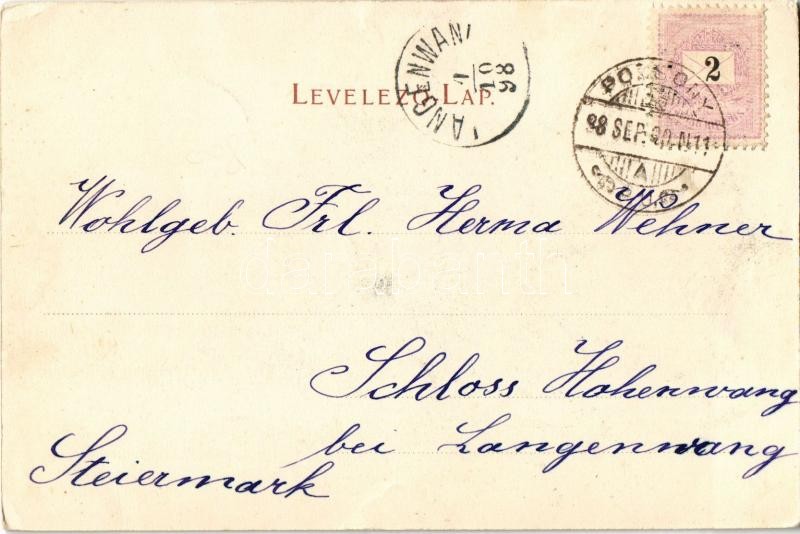 LEVELEZŐ-LAP.
LANGENWAN
1
10
98
2
POZSONY
98 SEP. 30. N 11
Wohlgeb. Frl. Herma Wehner
Schloss Hohenwang
bei Langenwang
Steiermark
darabanth